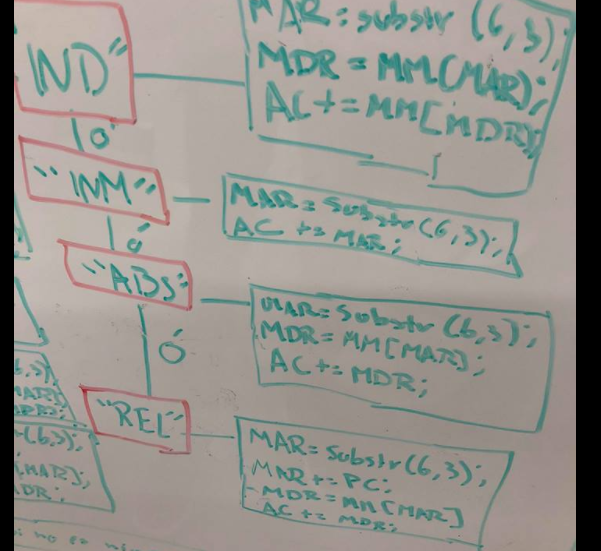 "IND"
MAR = substr (6,3);
MDR = MM(MAR);
AC += MM[MDR];
ó
"INM"
MAR = Substr(6,3);
AC += MAR;
ó
"ABS"
MAR = Substr (6,3);
MDR = MM[MAR];
AC += MDR;
ó
"REL"
MAR = Substr(6,3);
MAR += PC;
MDR = MM[MAR]
AC += MDR;
6,3);
MAR]
(6,3);
[MAR];
DR;
no es